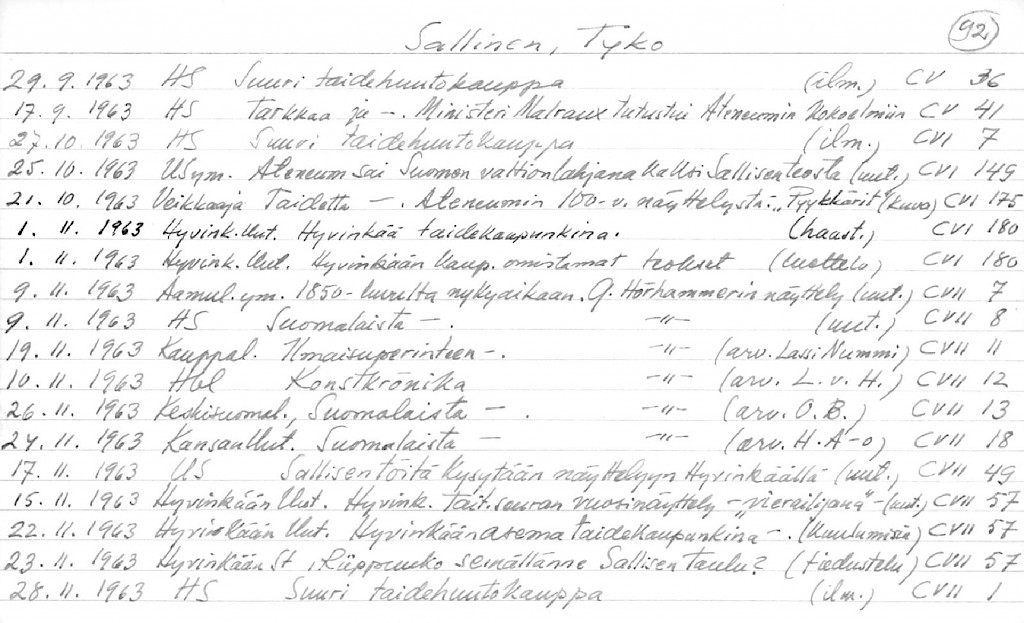 Sallinen, Tyko 92
29.9.1963 HS Suuri taidehuutokauppa (ilm.) CV 36
17.9.1963 HS Tarkkaa ja —. Ministeri Malraux tutustui Ateneumin kokoelmiin CV 41
27.10.1963 HS Suuri taidehuutokauppa (ilm.) CVI 7
25.10.1963 USym. Ateneum sai Suomen valtion lahjana kaksi Sallisen teosta (uut.) CVI 149
21.10.1963 Veikkaaja Taidetta —. Ateneumin 100-v. näyttelystä: „Pyykkärit (kuva) CVI 175
1.11.1963 Hyvink.Uut. Hyvinkää taidekaupunkina. (haast.) CVI 180
1.11.1963 Hyvink.Uut. Hyvinkään kaup. omistamat teokset (luettelo) CVI 180
9.11.1963 Aamul.ym. 1850-luvulta nykyaikaan. G. Hörhammerin näyttely (uut.) CVII 7
9.11.1963 HS Suomalaista —. —"— (uut.) CVII 8
19.11.1963 Kauppal. Ilmaisuperinteen —. —"— (arv. Lassi Nummi) CVII 11
10.11.1963 Hbl Konstkrönika —"— (arv. L.v.H.) CVII 12
26.11.1963 Keskisuomal., Suomalaista —. —"— (arv. O.B.) CVII 13
24.11.1963 Kansan Uut. Suomalaista — —"— (arv. H.A-o) CVII 18
17.11.1963 US Sallisen töitä kysytään näyttelyyn Hyvinkäällä (uut.) CVII 49
15.11.1963 Hyvinkään Uut. Hyvink. Tait.seuran vuosinäyttely — „vierailijana" — (uut.) CVII 57
22.11.1963 Hyvinkään Uut. Hyvinkään asema taidekaupunkina —. (kuulumisia) CVII 57
23.11.1963 Hyvinkään St, Riippuuko seinällänne Sallisen taulu? (tiedustelu) CVII 57
28.11.1963 HS Suuri taidehuutokauppa (ilm.) CVII 1